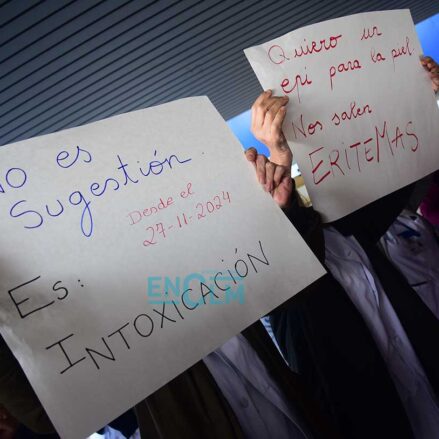 No es
Sugestión.
Desde el
27-11-2024
Es:
INTOXICACIÓN
Quiero un
epi para la piel.
Nos salen
ERITEMAS
ENCLM